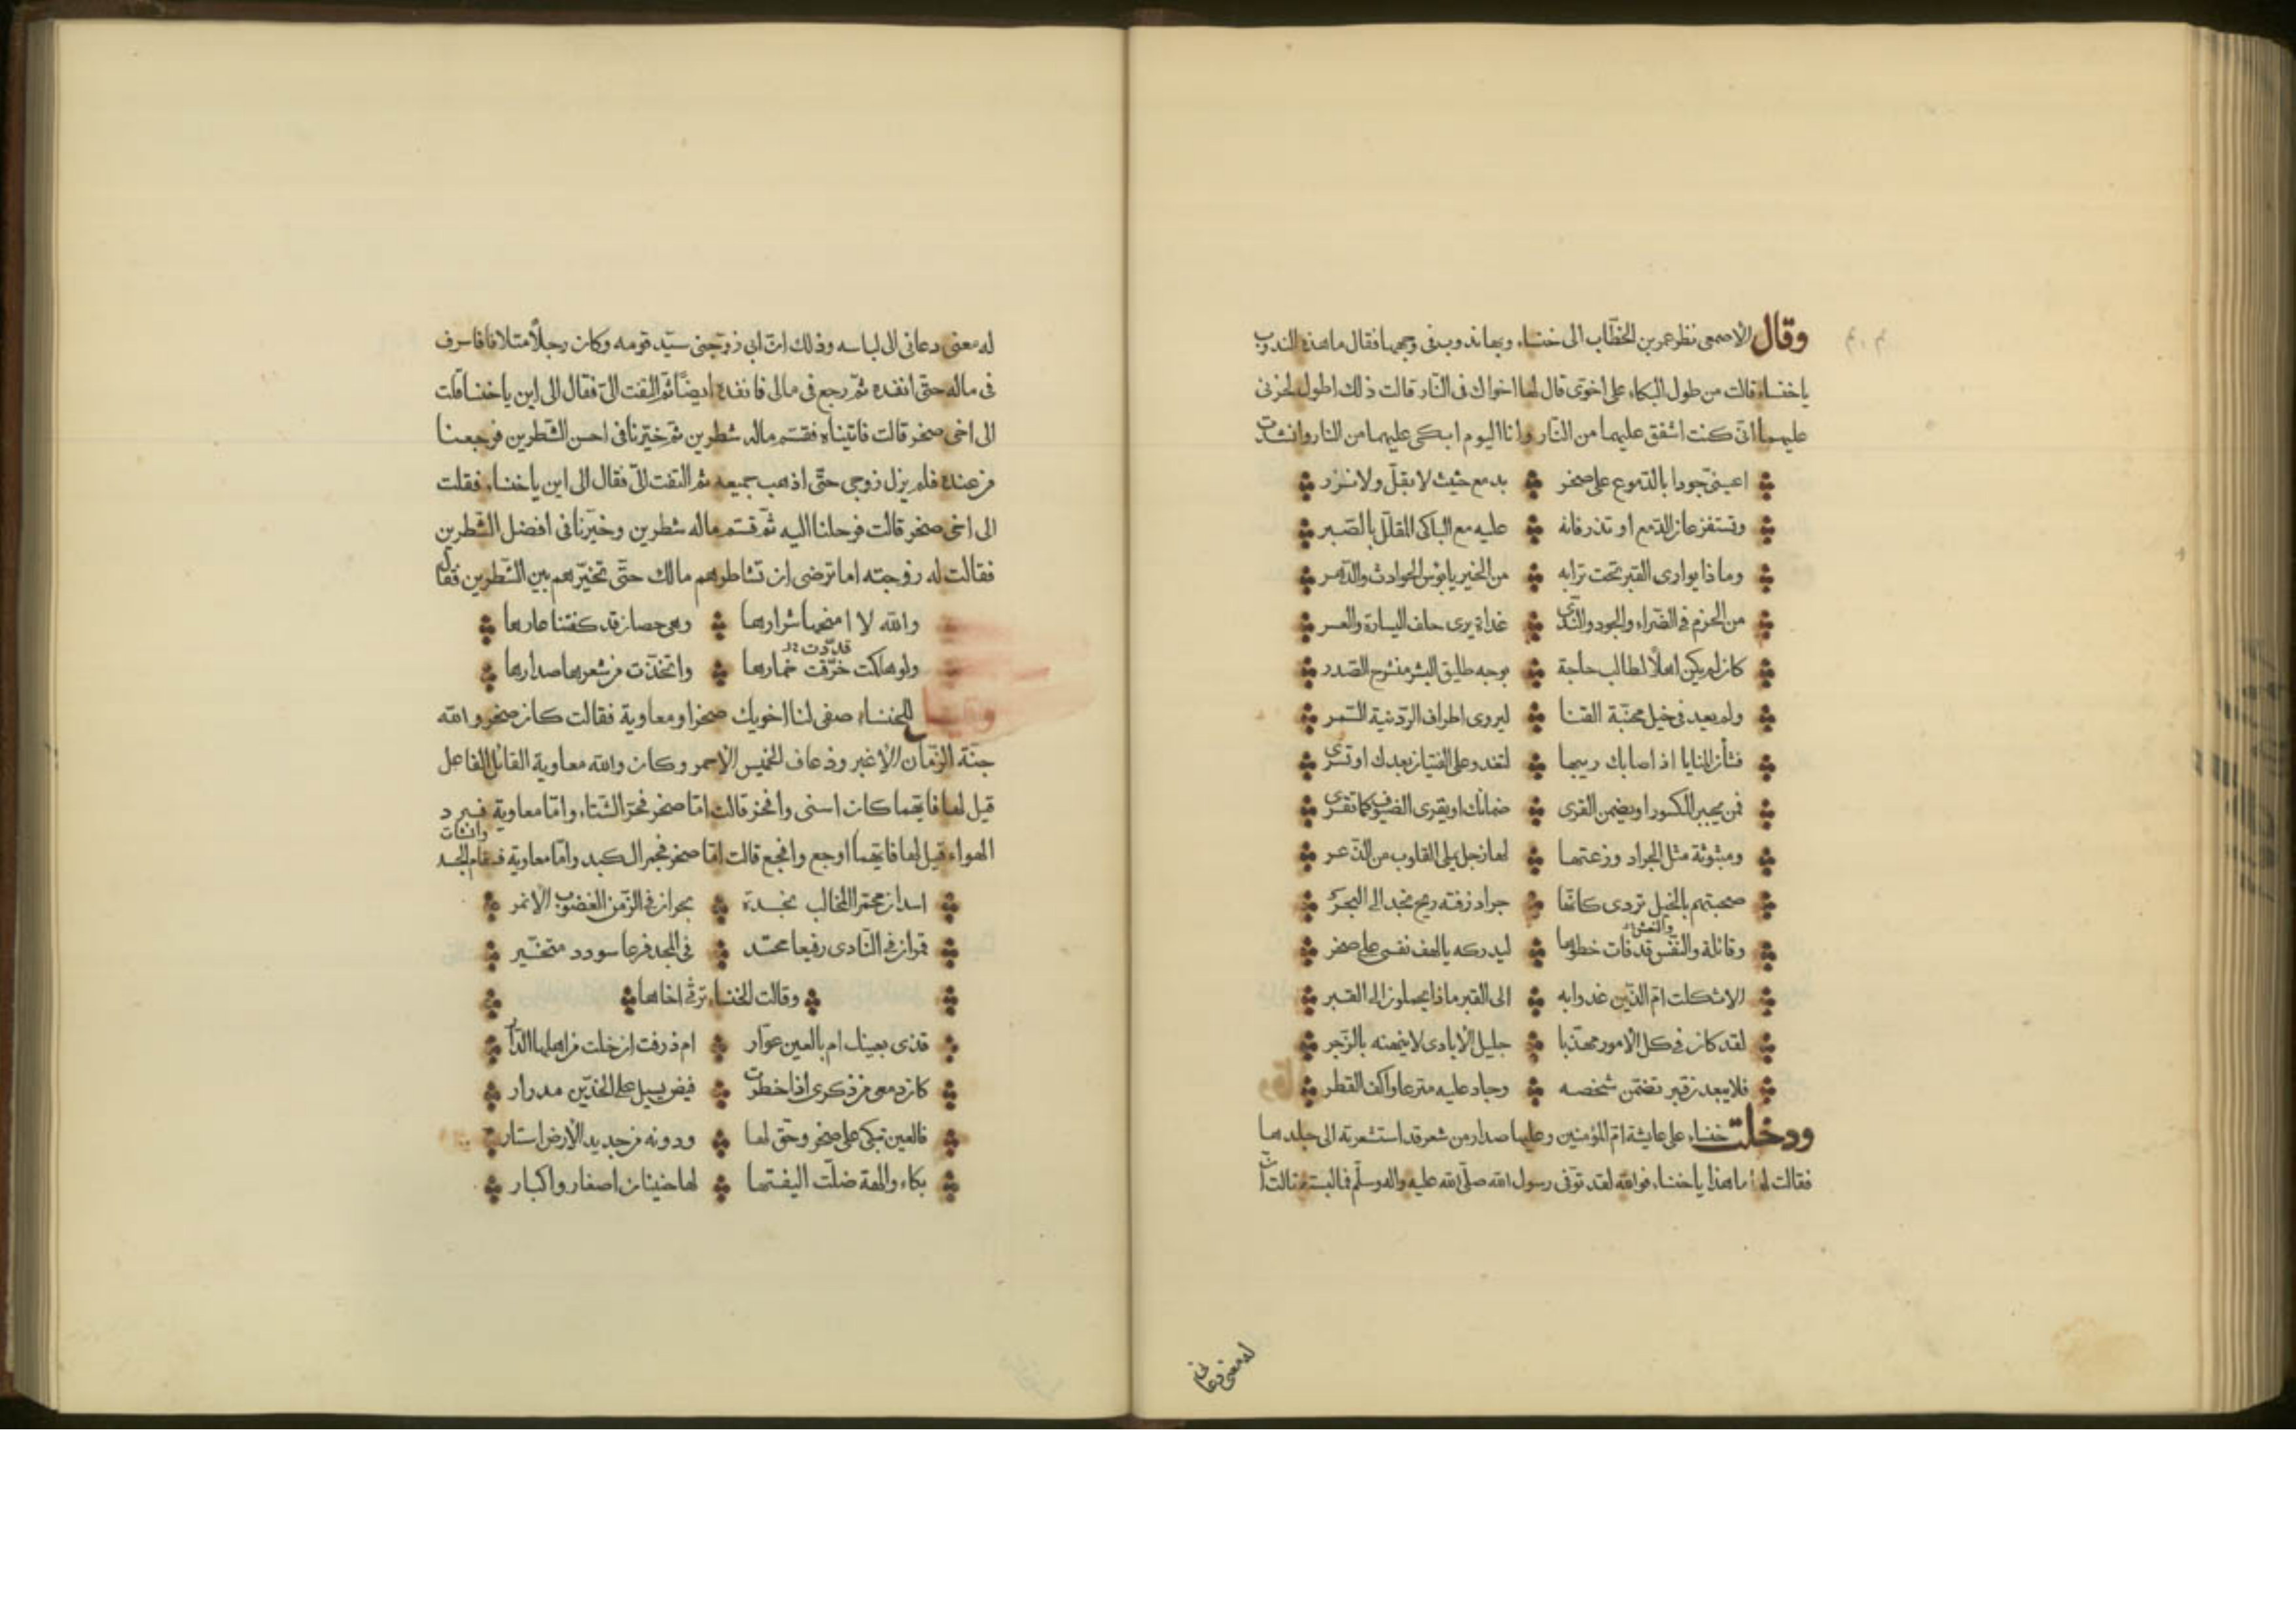 وقال الاصمعى نظر عمر بن الخطاب الى خنساء وبها ندوب فى وجهها فقال ما هذه الندوب
يا خنساء قالت من طول البكاء على اخوىّ قال لها اخواك فى النار قالت ذلك اطول لحزنى
عليهما انى كنت اشفق عليهما من النار وانا اليوم ابكى عليهما من النار وانشدت
اعينىّ جودا بالدموع على صخر بدمع حثيث لا بقلّ ولا نزر
وتستفزعان الدمع او تذرفانه عليه مع الباكى المقلّل بالصبر
وماذا يوارى القبر تحت ترابه من الخير يا بؤس الحوادث والدهر
من الحزم فى الضراء والجود والندى غداة يرى حلف اليسارة والعسر
كان لم يكن اهلا لطالب حاجة بوجه طليق البشر منشرح الصدر
ولم يعد فى خيل مجنبة القنا ليروى اطراف الردينية السمر
فشأن المنايا اذ اصابك ريبها لتغدو على الفتيان بعدك او تسرى
فمن يجبر المكسور او يضمن القرى ضمانك او يقرى الضيوف كما تقرى
ومبثوثة مثل الجراد وزعتها لها زجل يملى القلوب من الذعر
صبحتهم بالخيل تردى كانها جراد زفته ريح نجد الى البحر
وقائلة والنفس قد فات خطوها ليدركه يا لهف نفسى على صخر
والنعش
الا ثكلت ام الذين غدوا به الى القبر ماذا يحملون الى القبر
لقد كان فى كل الامور مهذبا جليل الايادى لا ينهنه بالزجر
فلا يبعدن قبر تضمن شخصه وجاد عليه مترعا واكف القطر
ودخلت خنساء على عايشة ام المؤمنين وعليها صدار من شعر قد استشعرته الى جلدها
فقالت لها ما هذا يا خنساء فوالله لقد توفى رسول الله صلى الله عليه واله وسلم فما لبسته قالت ان
له معنى دعانى
له معنى دعانى الى لباسه وذلك ان ابى زوجنى سيد قومه وكان رجلا متلافا فاسرف
فى ماله حتى انفده ثم رجع فى مالى فانفده ايضا ثم التفت الىّ فقال الى اين يا خنسا قلت
الى اخى صخر قالت فاتيناه فقسم ماله شطرين ثم خيرنا فى احسن الشطرين فرجعنا
من عنده فلم يزل زوجى حتى اذهب جميعه ثم التفت الىّ فقال الى اين يا خنساء فقلت
الى اخى صخر قالت فرحلنا اليه ثم قسم ماله شطرين وخيرنا فى افضل الشطرين
فقالت له زوجته اما ترضى ان تشاطرهم مالك حتى تخيرهم بين الشطرين فقال
والله لا امنحها شرارها وهى حصان قد كفتنا عارها
قددت
ولو هلكت خرّقت خمارها واتخذت من شعرها صدارها
للخنساء صفى لنا اخويك صخرا ومعاوية فقالت كان صخر والله
جنة الزمان الاغبر وذعاف الخميس الاحمر وكان والله معاوية القائل الفاعل
قيل لها فايهما كان اسنى وافخر قالت اما صخر فحرّ الشتاء واما معاوية فبرد
الهواء قيل لها فايهما اوجع وافجع قالت اما صخر فجمر الكبد واما معاوية فسقام الجسد
وانشات
اسدان محمرّا المخالب نجدة بحران فى الزمن الغضوب الانمر
قمران فى النادى رفيعا محتد فى المجد فرعا سودد متخير
وقالت الخنساء ترثى اخاها
قذى بعينك ام بالعين عوار ام ذرفت ان خلت من اهلها الدار
كان دمعى من ذكرى اذا خطرت فيض يسيل على الخدين مدرار
فالعين تبكى على صخر وحق لها ودونه من جديد الارض استار
بكاء والهة ضلت اليفتها لها حنينان اصغار واكبار